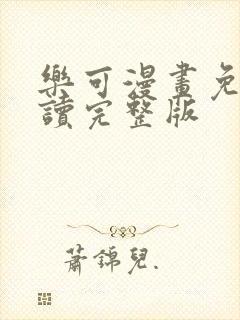 樂可漫畫免
讀完整版
蕭錦兒.